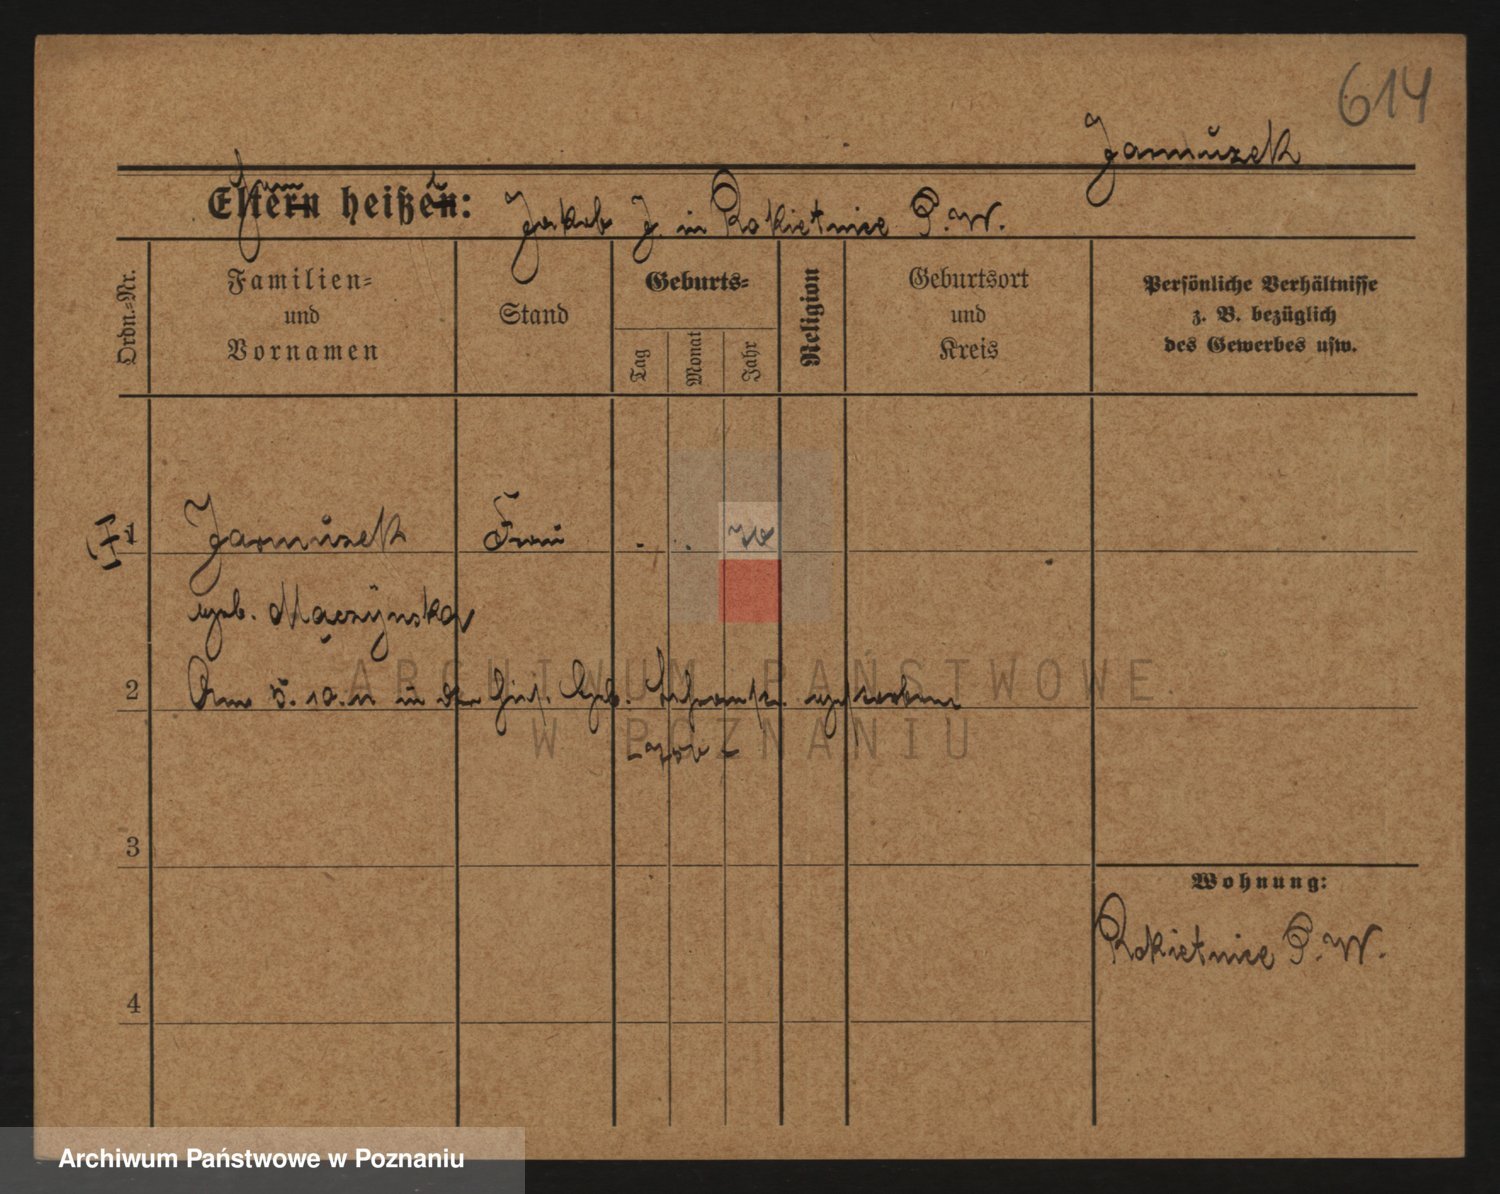 614
Jarmuzek
Eltern heißen: Jakob J. in Rokietnice P.W.
Ordn.=Nr.
Familien=
und
Vornamen
Stand
Geburts=
Tag
Monat
Jahr
Religion
Geburtsort
und
Kreis
Persönliche Verhältnisse
z. B. bezüglich
des Gewerbes usw.
1 Jarmuzek Frau
geb. Mączyńska
2 Am 5. 10. 11 in der gestorben
3
Wohnung:
Rokietnice P.W.
4
ARCHIWUM PAŃSTWOWE
W POZNANIU
Archiwum Państwowe w Poznaniu